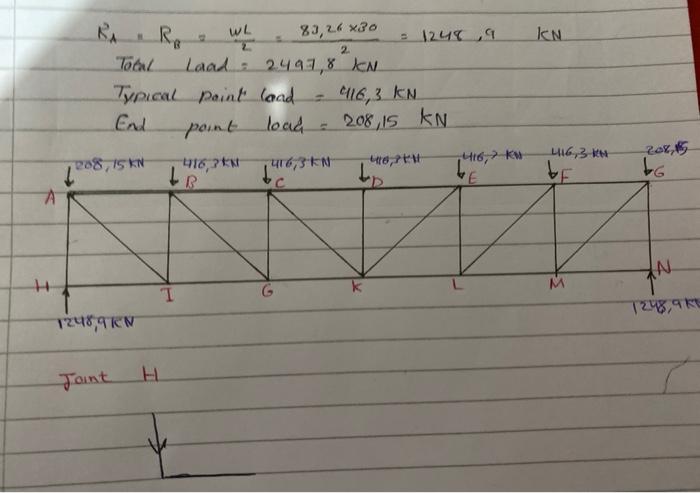 RA = RB = WL/2 = 83,26 x30/2 = 1248,9 KN
Total Laad = 2497,8 KN
Typical point load = 416,3 KN
End point load = 208,15 KN
208,15 KN 416,3KN 416,3KN 416,3KN 416,3 KN 416,3 KN 208,15
A B C D E F G
H I G K L M N
1248,9KN 1248,9 KN
Joint H